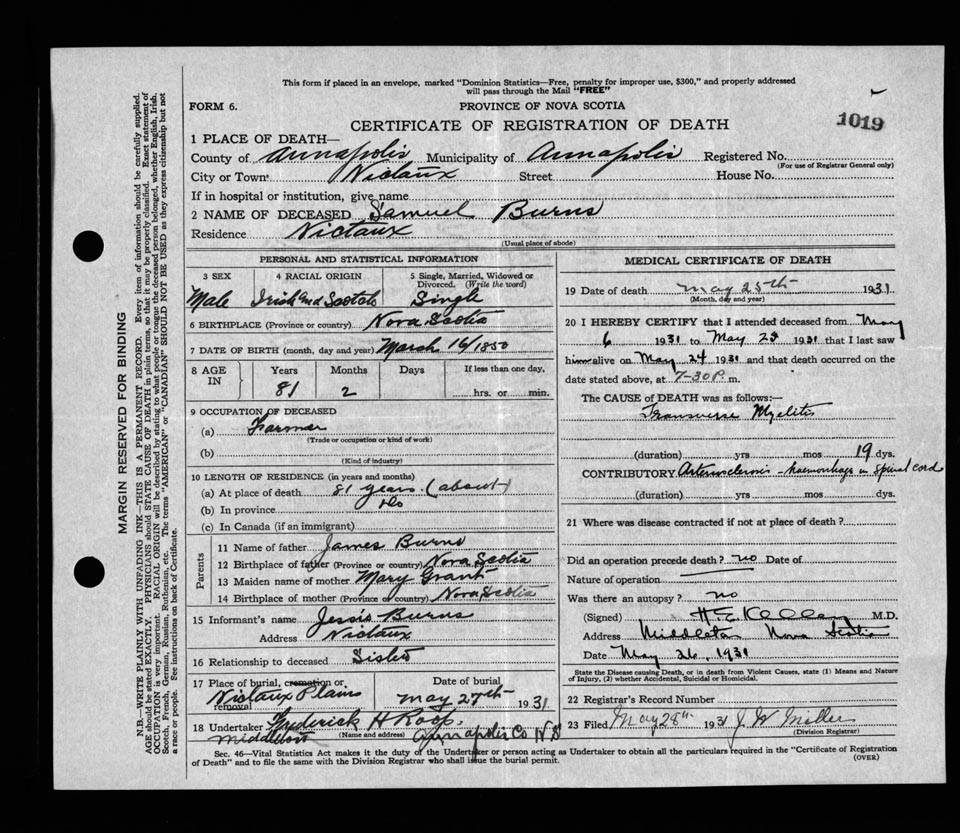 This form if placed in an envelope, marked "Dominion Statistics—Free, penalty for improper use, $300," and properly addressed
will pass through the Mail "FREE"
FORM 6.
PROVINCE OF NOVA SCOTIA
1019
CERTIFICATE OF REGISTRATION OF DEATH
1 PLACE OF DEATH—
County of Annapolis Municipality of Annapolis Registered No.
(For use of Registrar General only)
City or Town Nictaux Street House No.
If in hospital or institution, give name
2 NAME OF DECEASED Samuel Burns
Residence Nictaux
(Usual place of abode)
PERSONAL AND STATISTICAL INFORMATION
3 SEX 4 RACIAL ORIGIN 5 Single, Married, Widowed or Divorced. (Write the word)
Male Irish and Scotch Single
6 BIRTHPLACE (Province or country) Nova Scotia
7 DATE OF BIRTH (month, day and year) March 16/1850
8 AGE IN Years Months Days If less than one day,
81 2 hrs. or min.
9 OCCUPATION OF DECEASED
(a) Farmer
(Trade or occupation or kind of work)
(b)
(Kind of industry)
10 LENGTH OF RESIDENCE (in years and months)
(a) At place of death 81 years (about)
(b) In province do
(c) In Canada (if an immigrant)
Parents
11 Name of father James Burns
12 Birthplace of father (Province or country) Nova Scotia
13 Maiden name of mother Mary Grant
14 Birthplace of mother (Province or country) Nova Scotia
15 Informant's name Jessie Burns
Address Nictaux
16 Relationship to deceased Sister
17 Place of burial, cremation or, removal Date of burial
Nictaux Plains May 27th 1931
18 Undertaker Frederick H Roop.
(Name and address)
Middleton Annapolis Co N S
MEDICAL CERTIFICATE OF DEATH
19 Date of death May 25th 1931
(Month, day and year)
20 I HEREBY CERTIFY that I attended deceased from May
6 1931 to May 25 1931 that I last saw
him alive on May 24 1931 and that death occurred on the
date stated above, at 7-30 P. m.
The CAUSE of DEATH was as follows:—
Transverse Myelitis
(duration) yrs mos 19 dys.
CONTRIBUTORY Arteriosclerosis - haemorrhage in spinal cord
(duration) yrs mos dys.
21 Where was disease contracted if not at place of death?
Did an operation precede death? no Date of
Nature of operation
Was there an autopsy? no
(Signed) M.D.
Address Middleton Nova Scotia
Date May 26, 1931
State the Disease causing Death, or in death from Violent Causes, state (1) Means and Nature
of Injury, (2) whether Accidental, Suicidal or Homicidal.
22 Registrar's Record Number
23 Filed May 28th 1931 J. W. Miller
(Division Registrar)
Sec. 46—Vital Statistics Act makes it the duty of the Undertaker or person acting as Undertaker to obtain all the particulars required in the "Certificate of Registration
of Death" and to file the same with the Division Registrar who shall issue the burial permit.
(OVER)
MARGIN RESERVED FOR BINDING
N.B.—WRITE PLAINLY WITH UNFADING INK—THIS IS A PERMANENT RECORD. Every item of information should be carefully supplied.
AGE should be stated EXACTLY. PHYSICIANS should STATE CAUSE OF DEATH in plain terms, so that it may be properly classified. Exact statement of
OCCUPATION is very important. RACIAL ORIGIN will be described by stating to what people or tongue the deceased person belonged, whether English, Irish,
Scotch, French, German, Russian, Ruthenian, etc. The terms "AMERICAN" or "CANADIAN" SHOULD NOT BE USED as they express citizenship but not
a race or people. See instructions on back of Certificate.